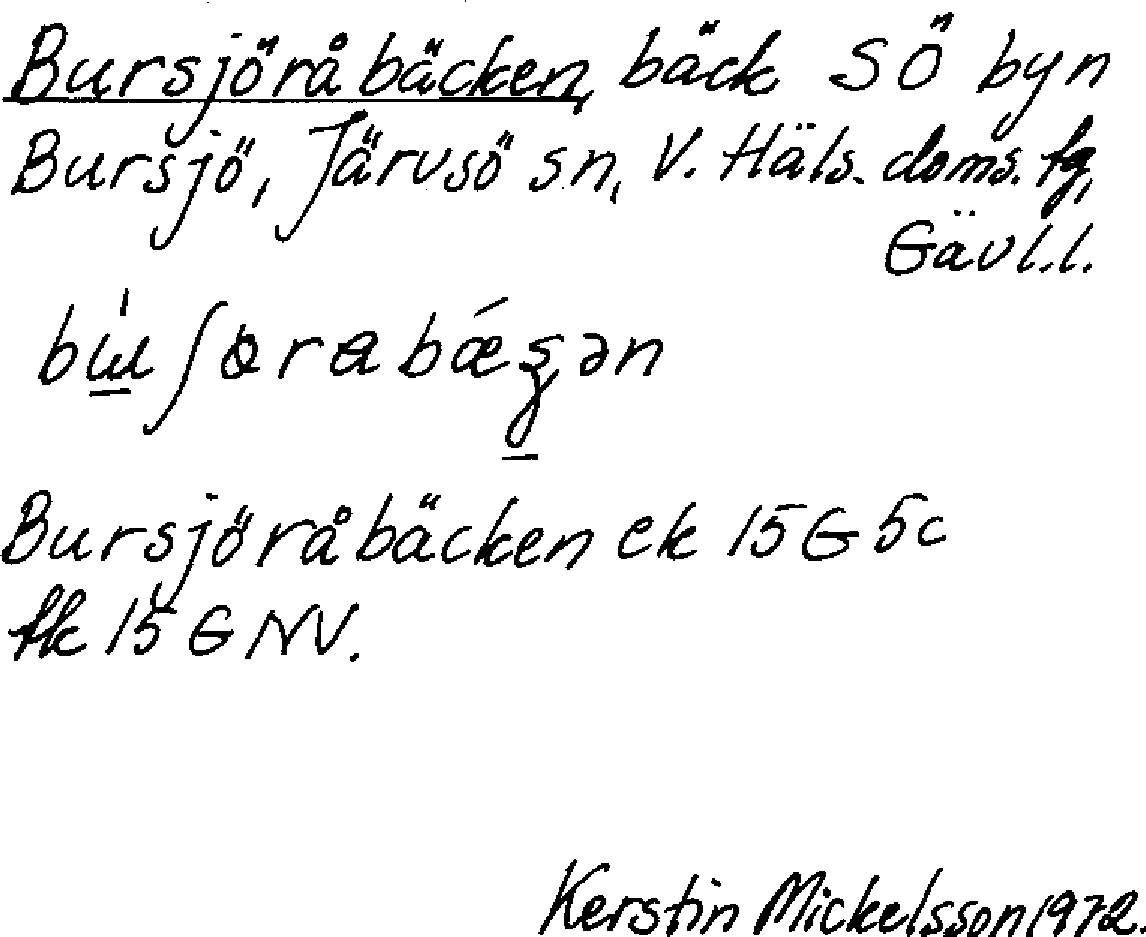 Bursjöråbäcken, bäck SÖ byn
Bursjö, Järvsö sn, V. Häls. doms. tg,
Gävl.l.
Bursjöråbäcken ek 15 G 5c
tk 15 G NV.
Kerstin Mickelsson 1972.